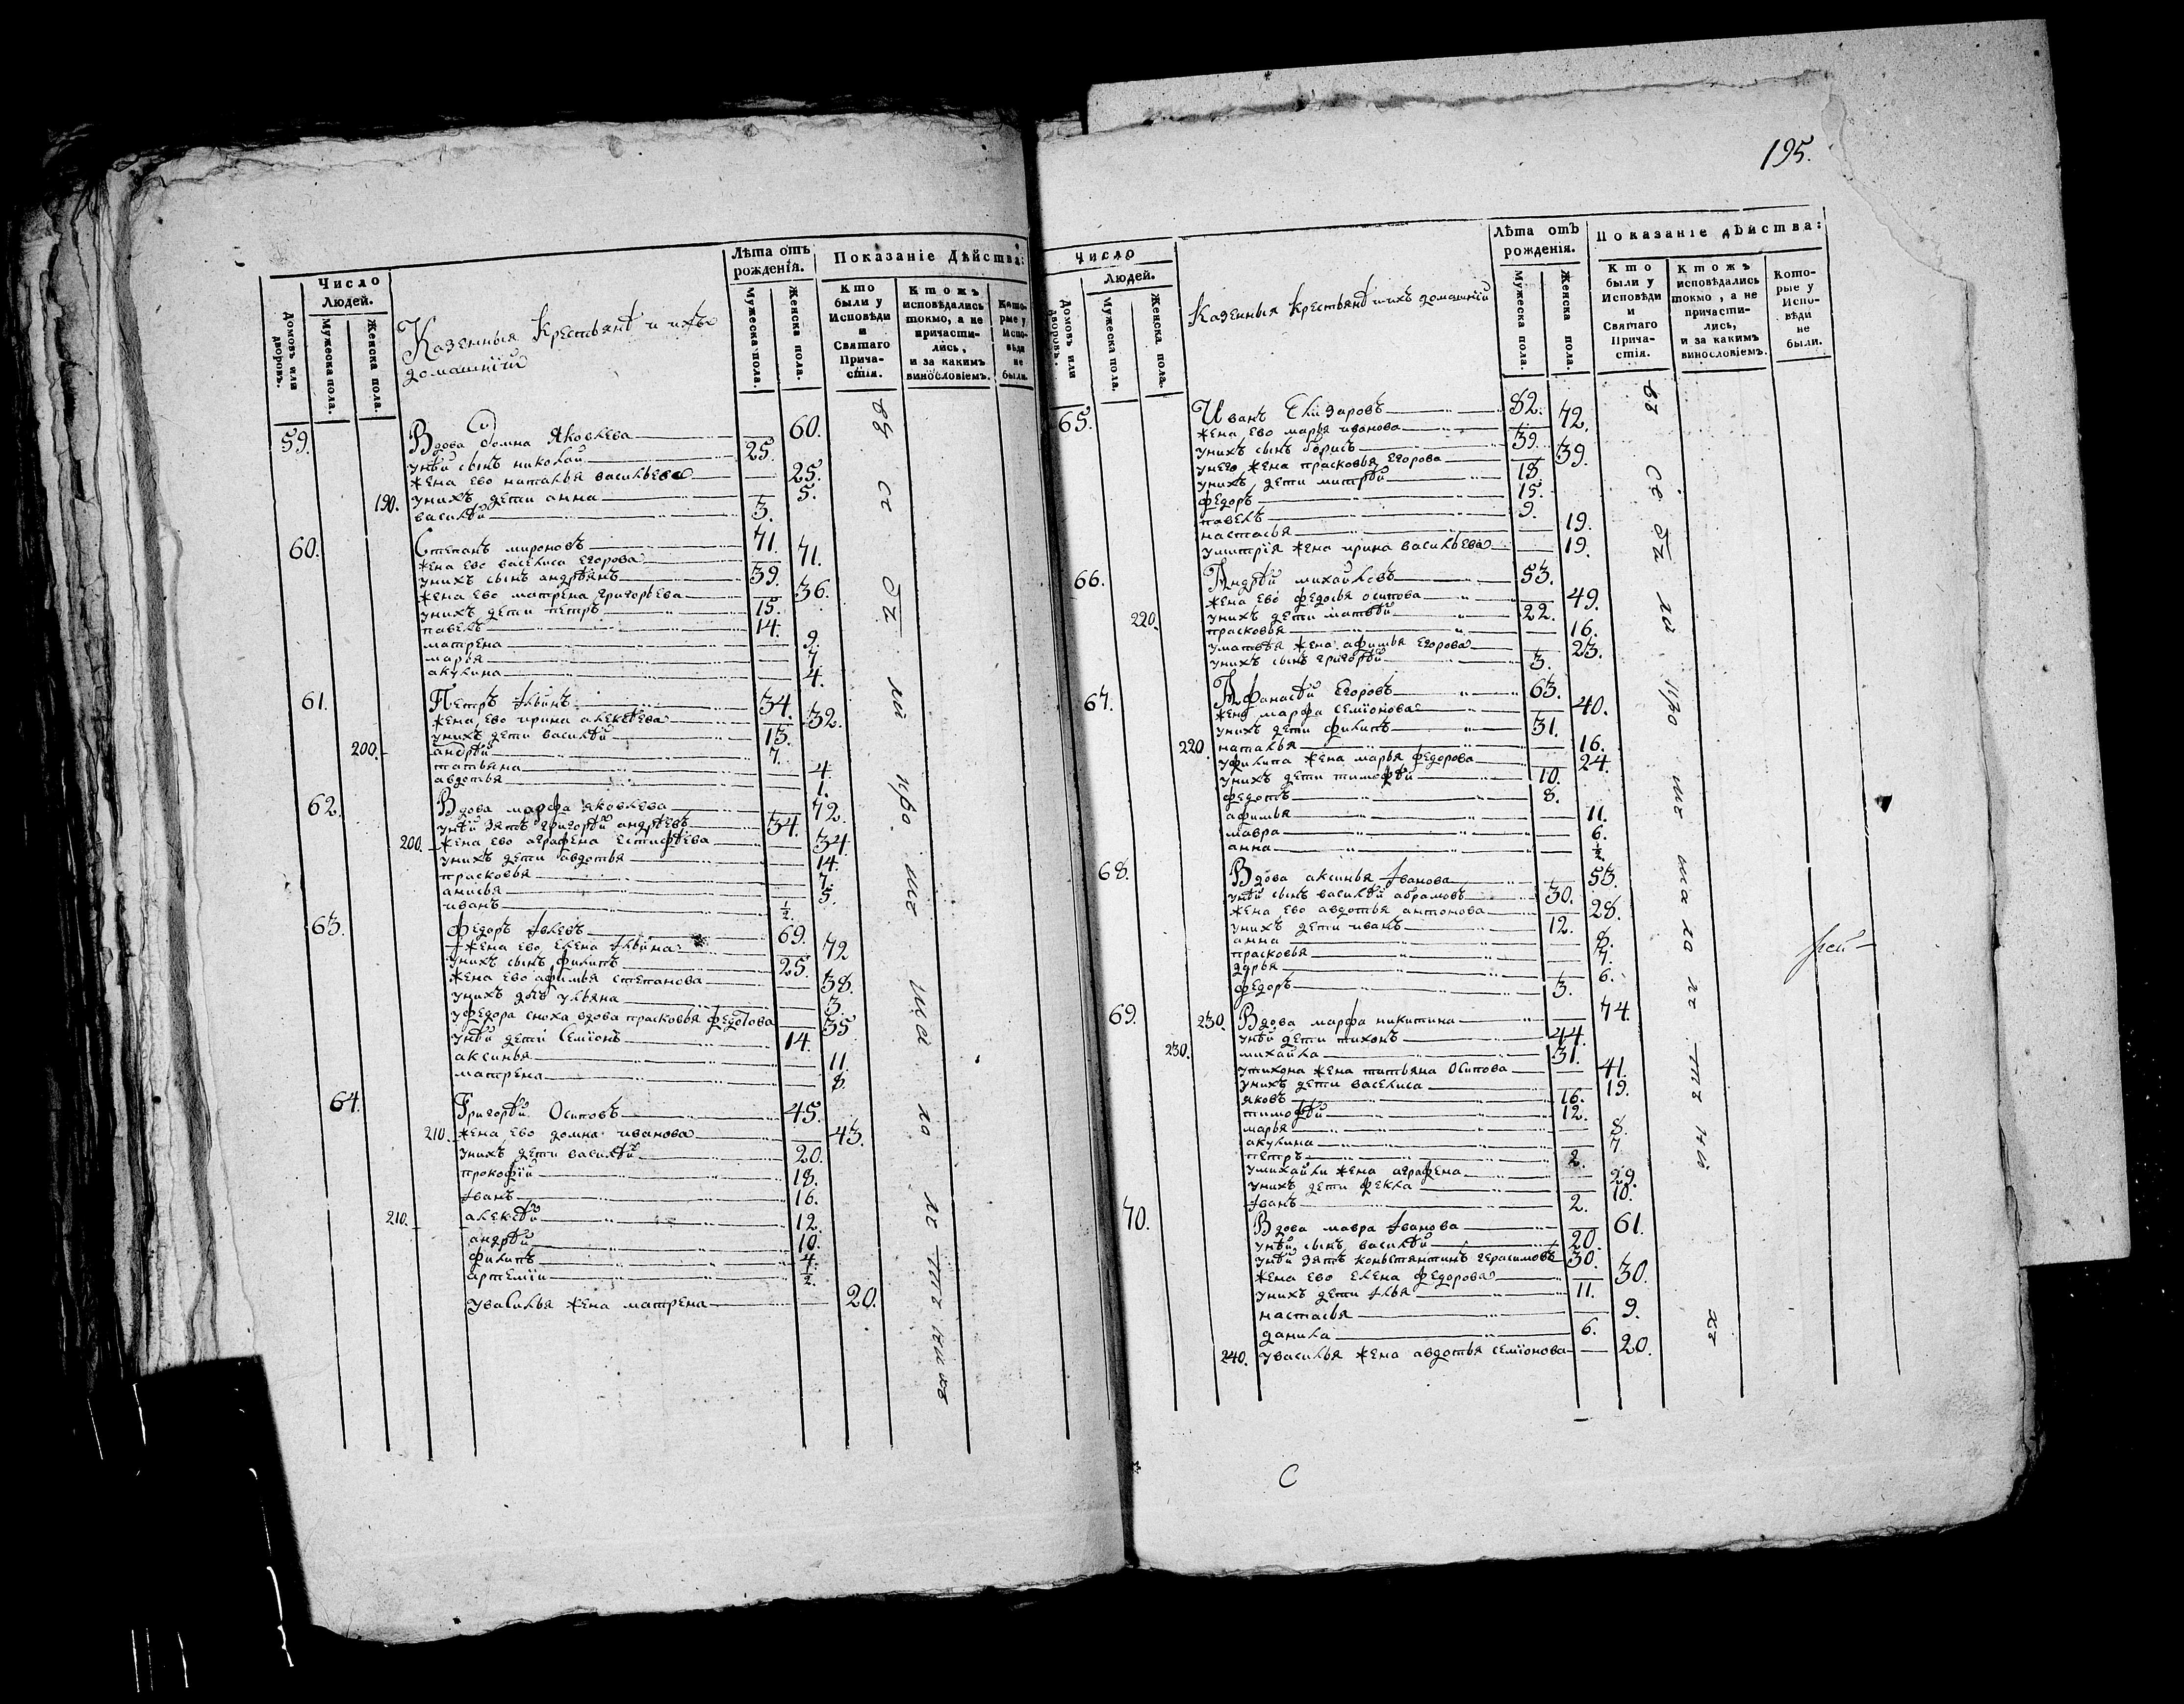 Число
Людей.
Домовъ или дворовъ.
Мужеска пола.
Женска пола.
Казенныя крестьянѣ и ихъ
домашнїи
Лѣта отъ
рожденія.
Мужеска пола.
Женска пола.
Показаніе Дѣйства:
Кто были у Исповѣди и Святаго Причастія.
Ктожъ исповѣдались токмо, а не причастились, и за какимъ винословіемъ.
Которые у Исповѣди не были.
59. Вдова домна Яковлева 60.
унѣй сынъ николай 25.
жена ево наталья васильева 25.
190. унихъ дети анна 5.
василѣй 3.
60. Степанъ мироновъ 71.
жена ево василиса Егорова 71.
унихъ сынъ андрѣянъ 39.
жена ево матрена григорьева 36.
унихъ дети петръ 15.
павелъ 14.
матрена 9.
марья 7
акулина 4.
61. Петръ Ильинъ 34.
жена ево ирина алексѣева 32.
унихъ дети василѣй 13.
200. андрѣй 7.
татьяна 4.
авдотья 1.
62. Вдова марфа яковлева 72.
унѣй зять григорѣй андрѣевъ 34.
200. жена ево аграфена Естифѣева 34.
унихъ дети авдотья 14.
прасковья 7.
анисья 5.
иванъ ½.
63. Федоръ Iвлевъ 69.
жена ево Елена Ильина 72
унихъ сынъ филипъ 25.
жена ево афимья степанова 38.
унихъ дочь ульяна 3.
уфедора сноха вдова прасковья федотова 35
унѣй дети Семїонъ 14.
аксинья 11.
матрена 8
64. Григорѣй Осиповъ 45.
210. жена ево домна иванова 43.
унихъ дети василѣй 20.
прокофїй 18.
Iванъ 16.
210. алексѣй 12.
андрѣй 10.
филипъ 4.
артемїи ½.
уваСилья жена матрена 20.
195.
Число
Людей.
Домовъ или дворовъ.
Мужеска пола.
Женска пола.
Казенныя крестьянѣ и ихъ домашнїи
Лѣта отъ
рожденія.
Мужеска пола.
Женска пола.
Показаніе дѣйства:
Кто были у Исповѣди и Святаго Причастія.
Ктожъ исповѣдались токмо, а не причастились, и за какимъ винословіемъ.
Которые у Исповѣди не были.
65. Иванъ Елизаровъ 82.
жена ево марья иванова 72.
унихъ сынъ борисъ 39.
унего жена прасковья Егорова 39.
унихъ дети митрѣй 18
федоръ 15.
павелъ 9.
настасья 19.
умитрїя жена ирина васильева 19.
66. Андрѣй михайловъ 53.
жена ево федосья осипова 49.
220. унихъ дети матвѣй 22.
прасковья 16.
уматвѣя жена афимья Егорова 23.
унихъ сынъ григорѣй 3.
67. Афанасѣй Егоровъ 63.
жена марфа семїонова 40.
унихъ дети филипъ 31.
220 наталья 16.
уфилипа жена марья федорова 24.
унихъ дети тимофѣй 10.
федотъ 8.
афимья 11.
мавра 6.
анна ½.
68. Вдова аксинья Iванова 53.
унѣй сынъ василѣй абрамовъ 30.
жена ево авдотья антонова 28.
унихъ дети иванъ 12.
анна 8.
прасковья 7.
дарья 6.
федоръ 3.
69. 230. Вдова марфа никитина 74.
унѣй дети тихонъ 44.
230. михайла 31.
утихона жена татьяна Осипова 41.
унихъ дети василиса 19.
яковъ 16.
тимофѣй 12.
марья 8.
акулина 7
петръ 2.
умихайлы жена аграфена 29.
унихъ дети фекла 10.
Iванъ 2.
70. Вдова мавра Iванова 61.
унѣй сынъ василѣй 20.
унѣй зять констянтинъ герасимовъ 30.
жена ево Елена федорова 30.
унихъ дети Iлья 11.
настасья 9.
данила 6.
240. увасилья жена авдотья семїонова 20.
С